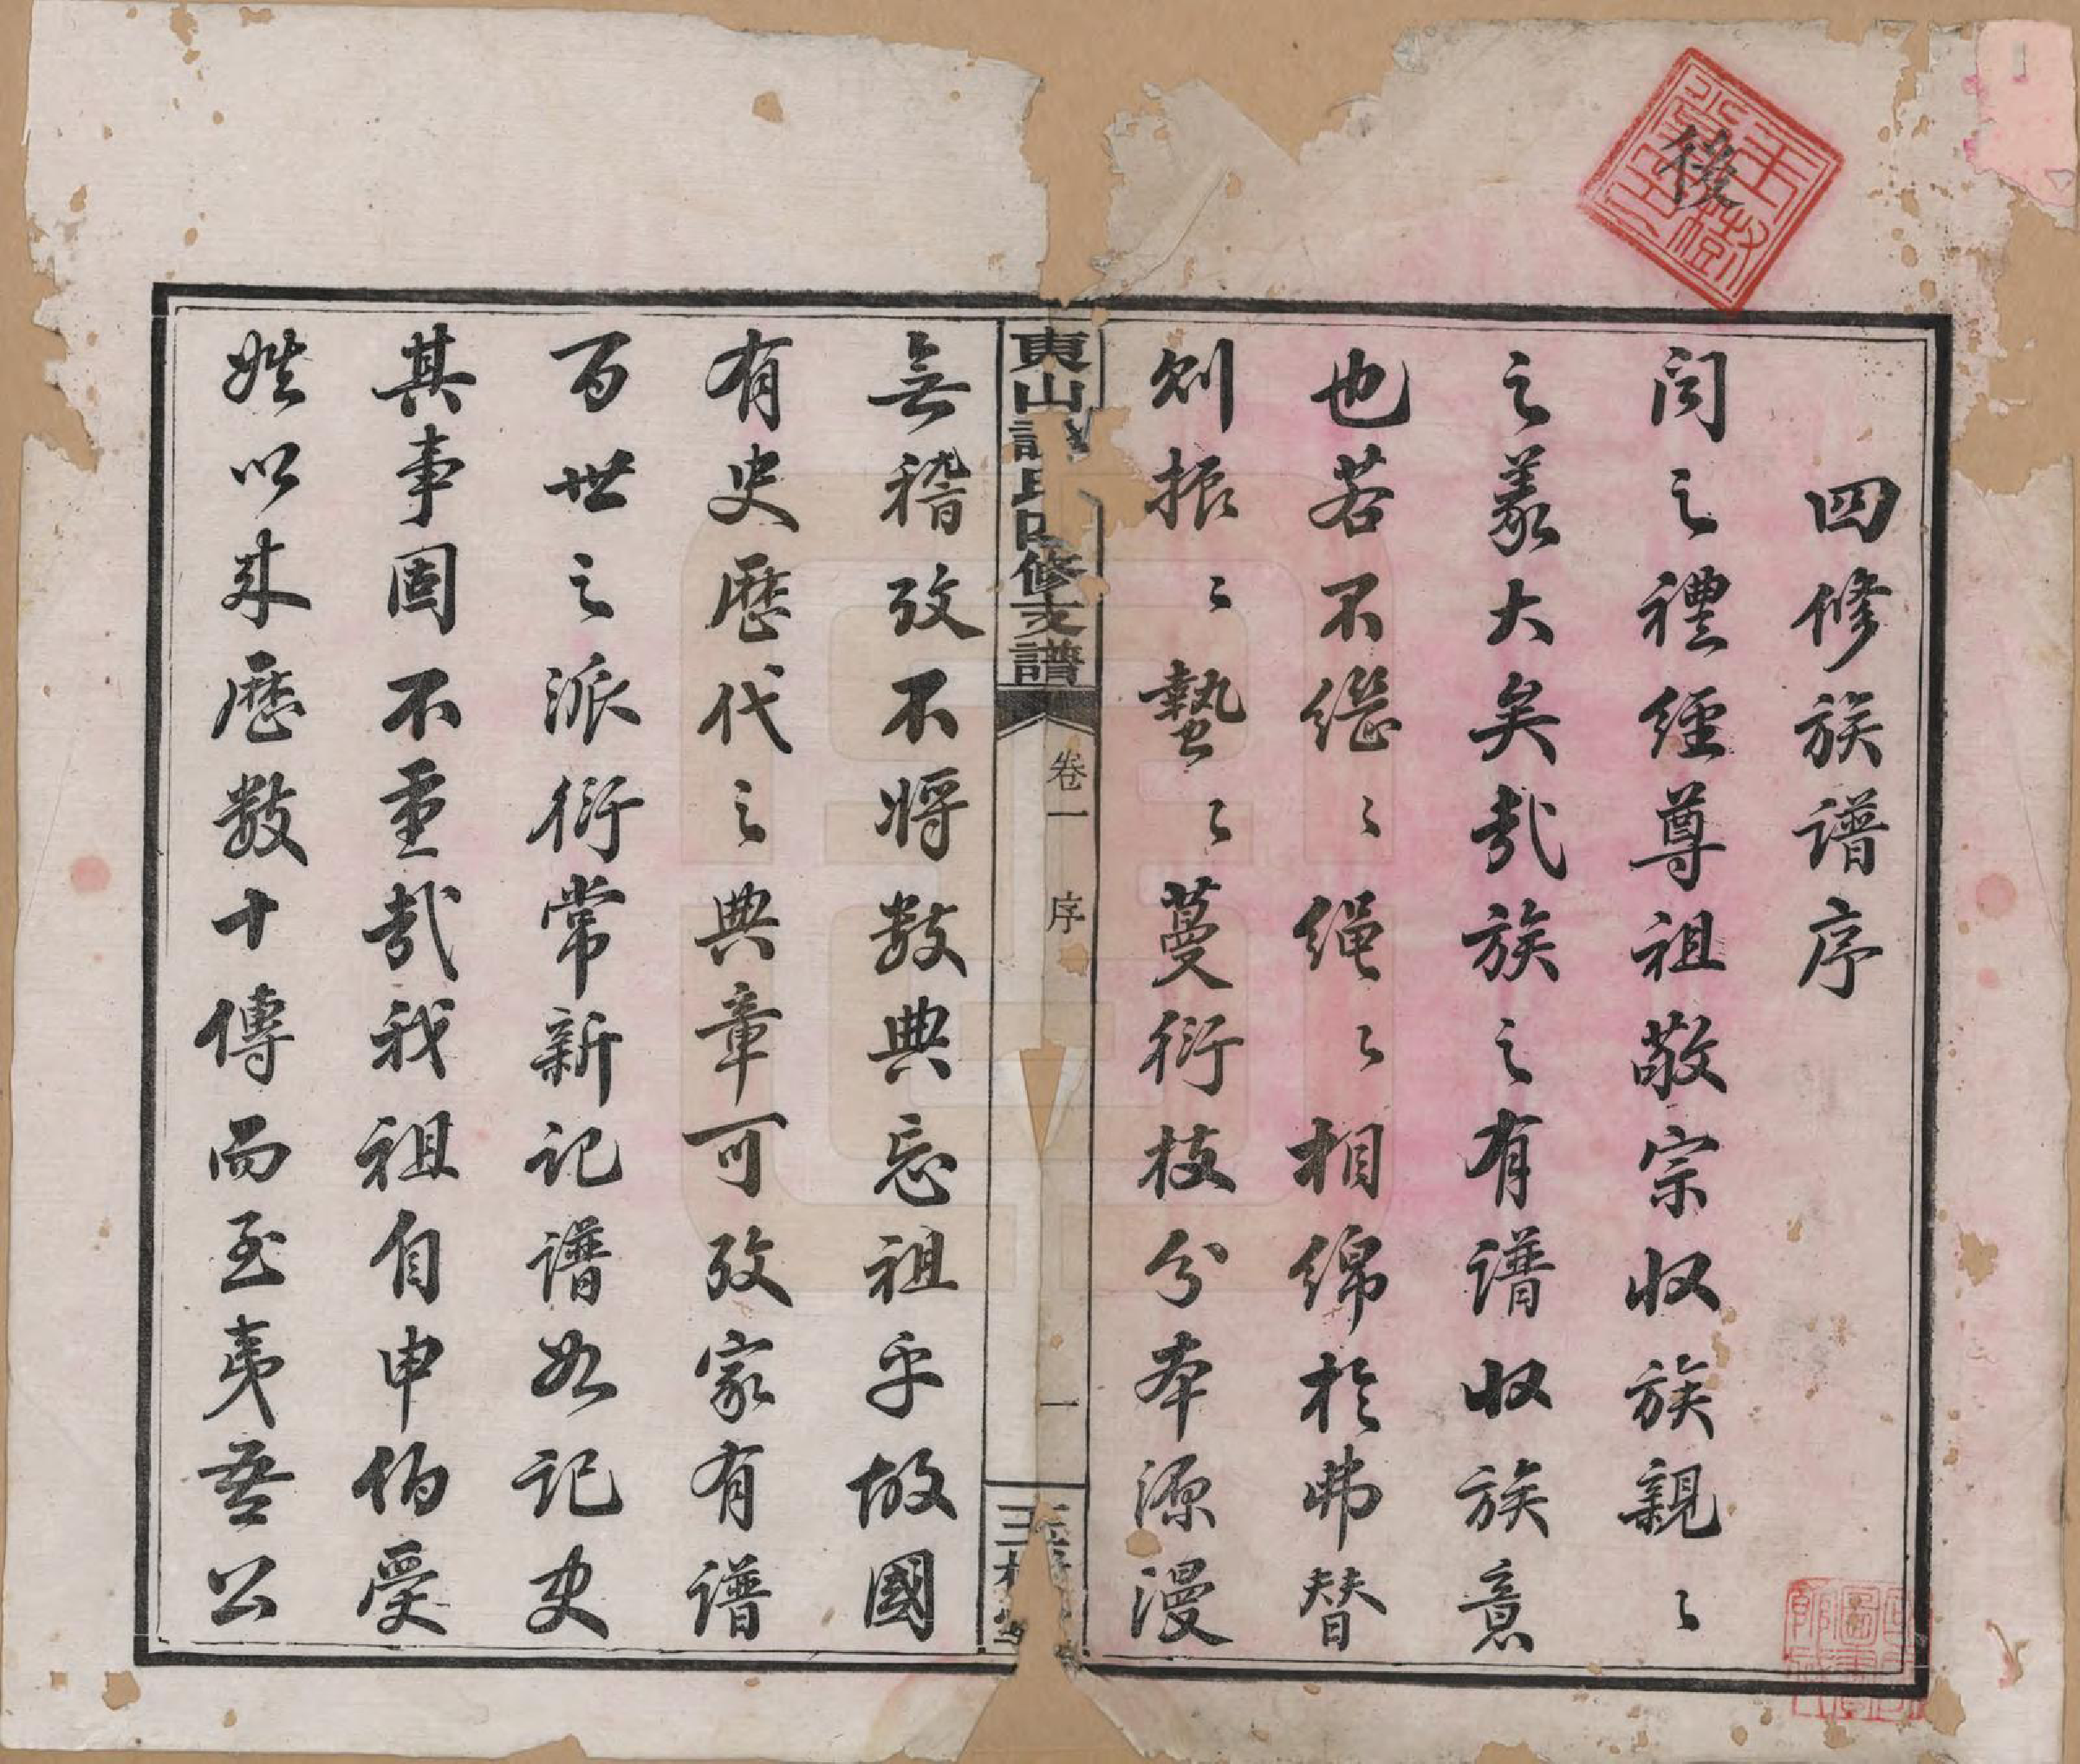 後
四修族譜序
闻之禮經尊祖敬宗収族親〻
之義大矣哉族之有譜収族意
也若不繼〻繩〻相綿於弗替
则振〻蟄〻蔓衍枝分本源漫
東山謝氏四修支譜
卷一 序
一
玉樹堂
無稽攷不將数典忘祖乎故國
有史歷代之典章可攷家有譜
百世之派衍常新記譜如記史
其事固不重哉我祖自申伯受
姓以來歷数十傳而至夷吾公